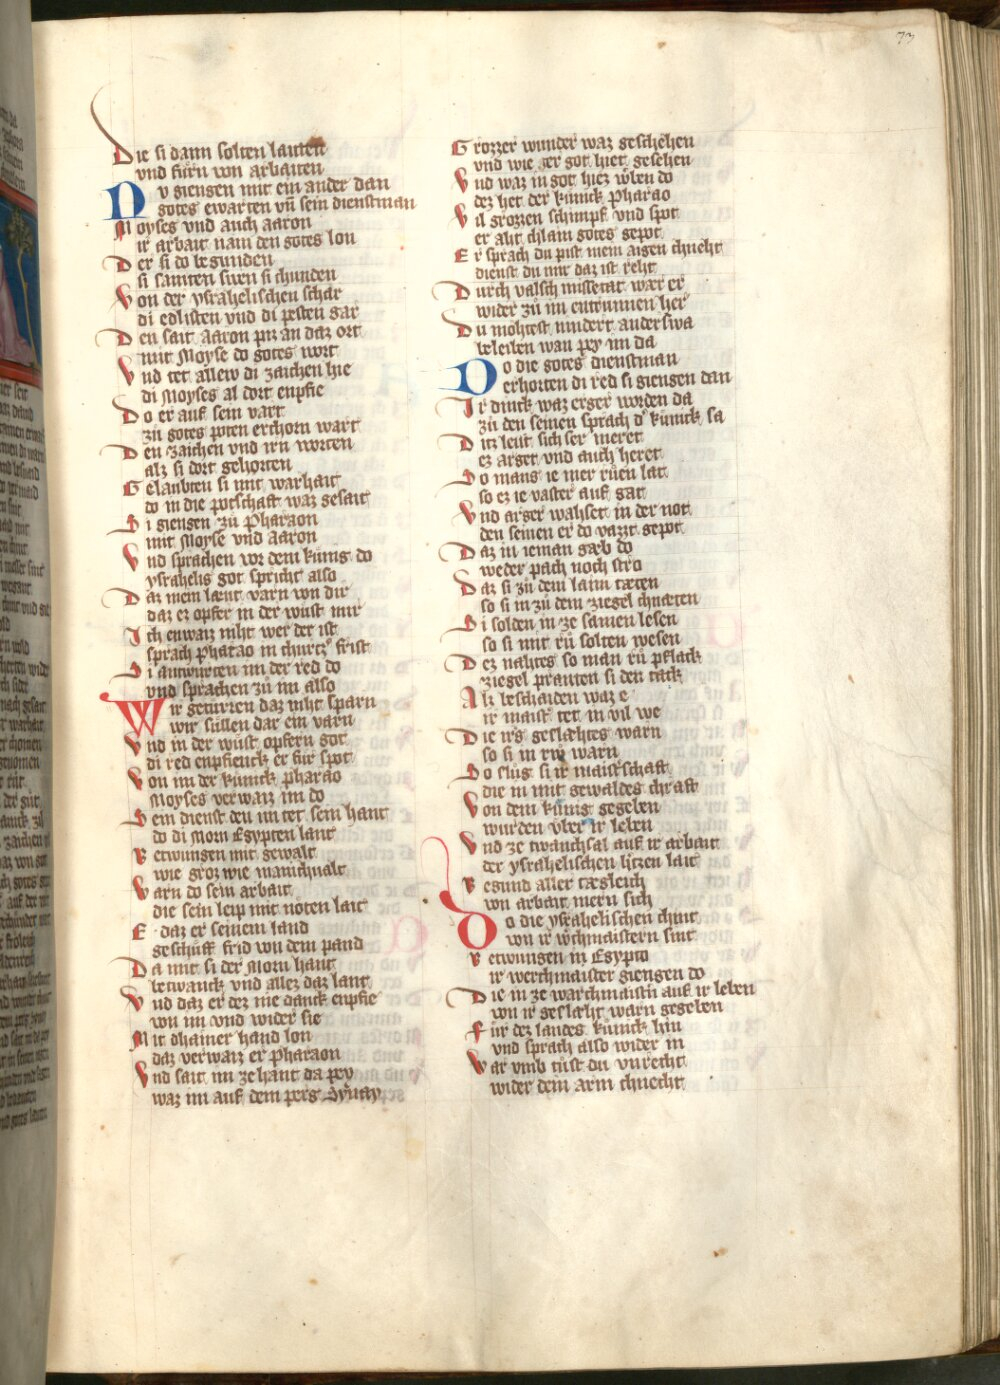 73
Die si dann solten laiten
vnd fůrn von arbaiten
Nv giengen mit ein ander dan
gotes ewarten vn̄ sein dienstman
Moyses vnd auch aaron
ir arbait nam den gotes lon
Der si do begunden
si samten swen si chunden
Von der ysrahelischen schar
di edlisten vnd di pesten gar
Den sait aaron piz an daz ort
mit Moyse do gotes wort
Vnd tet allew di zaichen hie
di Moyses al dort enpfie
Do er auf sein vart
zů gotes poten erchorn wart
Den zaichen vnd irn worten
alz si dort gehorten
Gelaubten si mit warhait
do in die potschaft waz gesait
Si giengen zů Pharaon
mit Moyse vnd aaron
Vnd sprachen vor dem kůnig do
ysrahelis got spricht also
Daz mein læut varn von dir
daz ez opfer in der wůst mir
Ich enwaiz niht wer der ist
sprach Pharao in churtzer frist
Si antwurten im der red do
vnd sprachen zů im also
Wir geturren daz niht sparn
wir sůllen dar ein varn
Vnd in der wůst opfern got
di red enpfienck er fůr spot
Von im der kůnick pharao
Moyses verwaiz im do
Sein dienst den im tet sein hant
do di Morn Egypten lant
Betwungen mit gewalt
wie groz wie manichualt
Warn do sein arbait
die sein leip mit nöten lait
E daz er seinem land
geschůff frid von dem pand
Da mit si der Morn hant
betwanck vnd allez daz lant
Vnd daz er dez nie danck enpfie
von im vnd wider sie
Mit dhainer hand lon
daz verwaiz er Pharaon
Vnd sait im ze hant da pey
waz im auf dem perg Synay
Grozzer wunder waz geschehen
vnd wie er got hiet gesehen
Vnd waz in got hiez wěben do
dez het der kůnick Pharao
Vil grozzen schimpf vnd spot
er aht chlain gotes gepot
Er sprach du pist mein aigen chneht
dienst du mir daz ist reht
Durch valsch missetat wær er
wider zů im entrunnen her
Du möhtest nindert anderswa
beleiben wan pey im da
Do die gotes dienstman
erhorten di red si giengen dan
Ir dinck waz erger worden da
zů den seinen sprach der kůnick sa
Ditz leut sich ser meret
ez arget vnd auch heret
So mans ie mer růen lat
so ez ie vaster auf gat
Vnd arger wahset in der not
den seinen er do vazzt gepot
Daz in ieman gæb do
weder pach noch stro
Daz si zů dem laim tæten
so si in zů dem ziegel chnæten
Si solden in ze samen lesen
so si mit rů solten wesen
Dez nahtes so man rů pflack
ziegel pranten si den tack
Alz beschaiden waz e
ir maister tet in vil we
Die irs geslæhtes warn
so si in rw warn
Do slůg si ir maisterschaft
die in mit gewaldes chraft
Von dem kůnig gegeben
wurden vber ir leben
Vnd ze twanchsal auf ir arbait
der ysrahelischen litzen lait
Begund aller tægleich
von arbait mern sich
Do die ysrahelischen chint
von ir werchmaistern sint
Betwungen in Egypto
ir werchmaister giengen do
Die in ze warchmaistern auf ir leben
von ir geslæht warn gegeben
Fůr dez landes kůnick hin
vnd sprach also wider in
War vmb tůst du vnrecht
wider dein arm chnecht